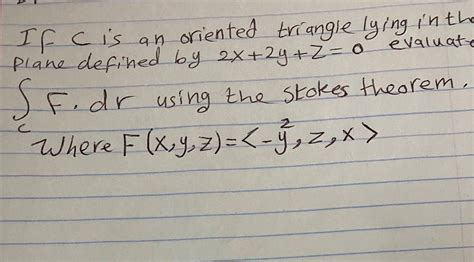 If C is an oriented triangle lying in th
Plane defined by 2x+2y+z=0 evaluat
∫_C F. dr using the stokes theorem.
Where F(x,y,z)=<-y²,z,x>